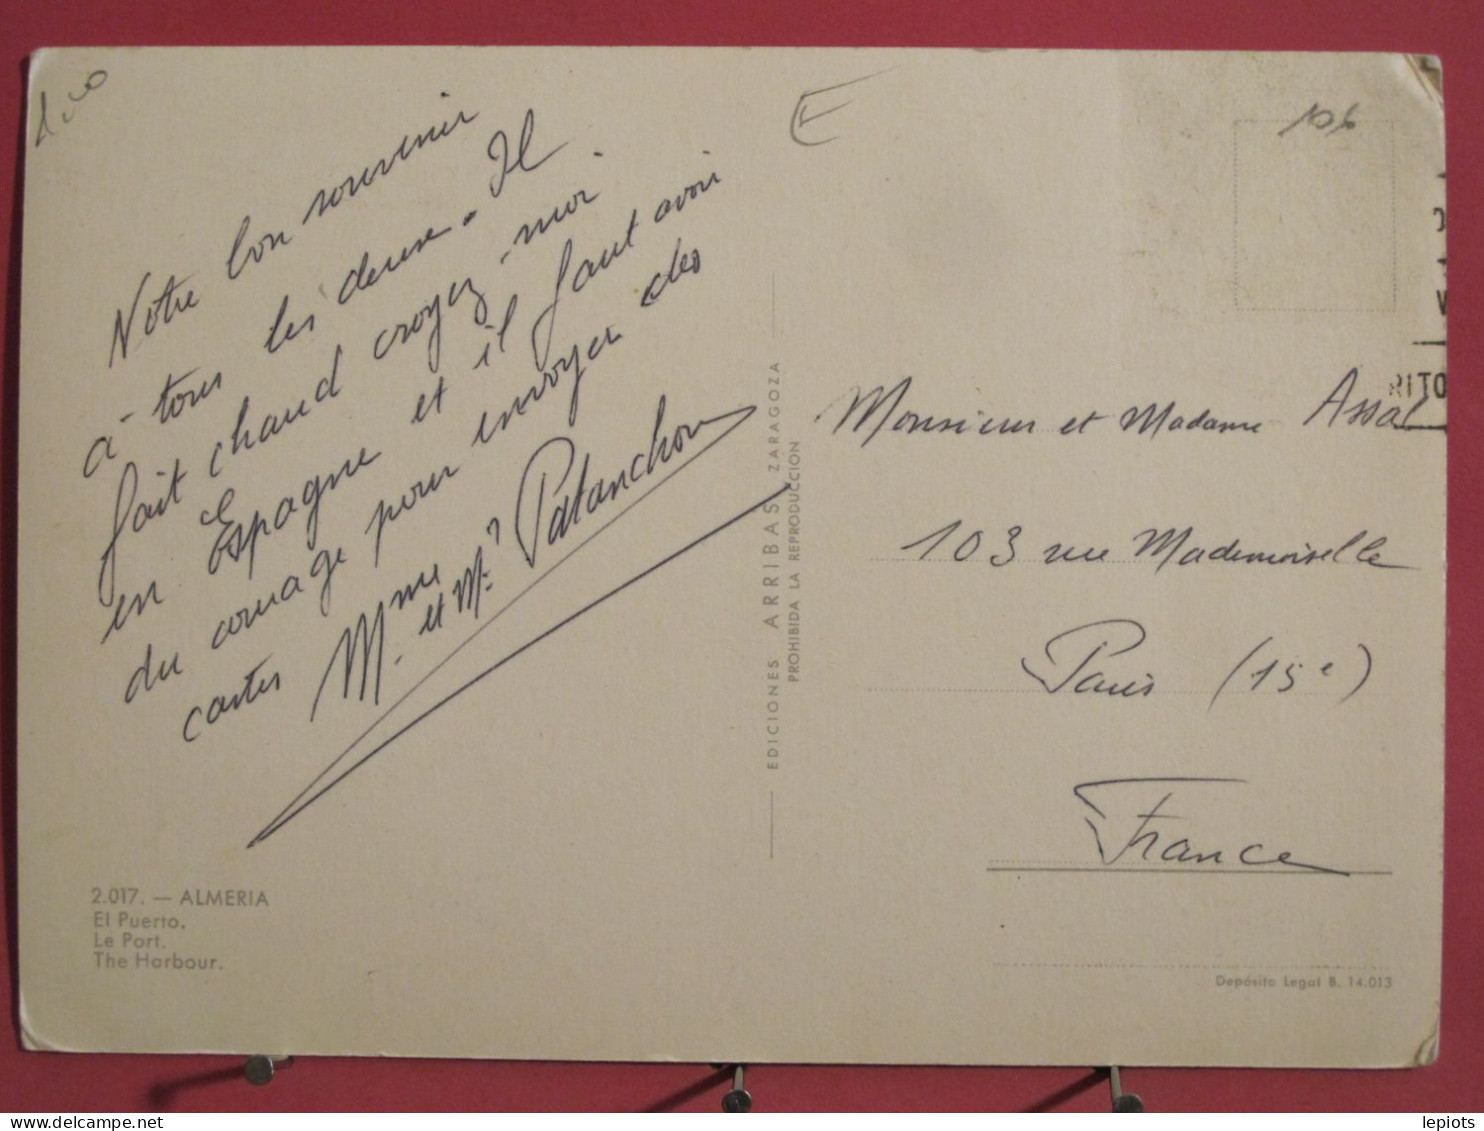 Notre bon souvenir
à tous les deux. Il
fait chaud croyez-moi.
en Espagne et il faut avoir
du courage pour envoyer des
cartes Mme et Mr Patanchon
E
106
Monsieur et Madame Assal
103 rue Mademoiselle
Paris (15e)
France
EDICIONES ARRIBAS ZARAGOZA
PROHIBIDA LA REPRODUCCION
RITO
2.017. — ALMERIA
El Puerto.
Le Port.
The Harbour.
Depósito Legal B. 14.013
lepiots